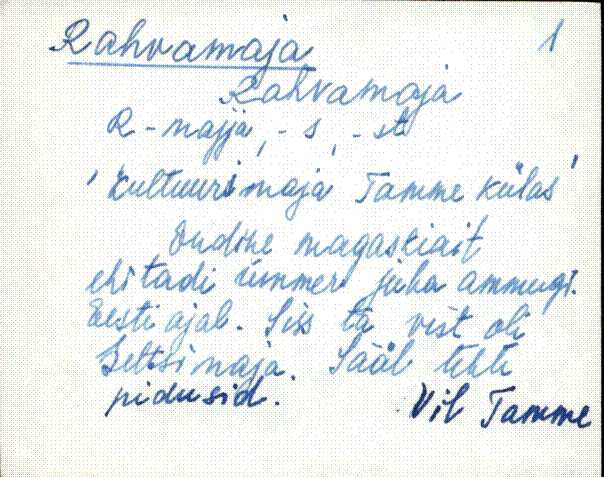 Rahvamaja 1
Rahvamaja
R-majja, -s, -st
'Kultuurimaja Tamme külas'
Endine magasiait
ehitadi ümmer juba ammugi.
Eesti ajal. Siis ta vist oli
Seltsimaja. Sääl tehti
pidusid. Vil Tamme